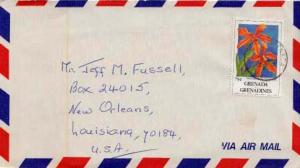 Mr. Jeff M. Fussell,
Box 24015,
New Orleans,
Louisiana, 70184,
U.S.A.
GRENADA
GRENADINES
VIA AIR MAIL